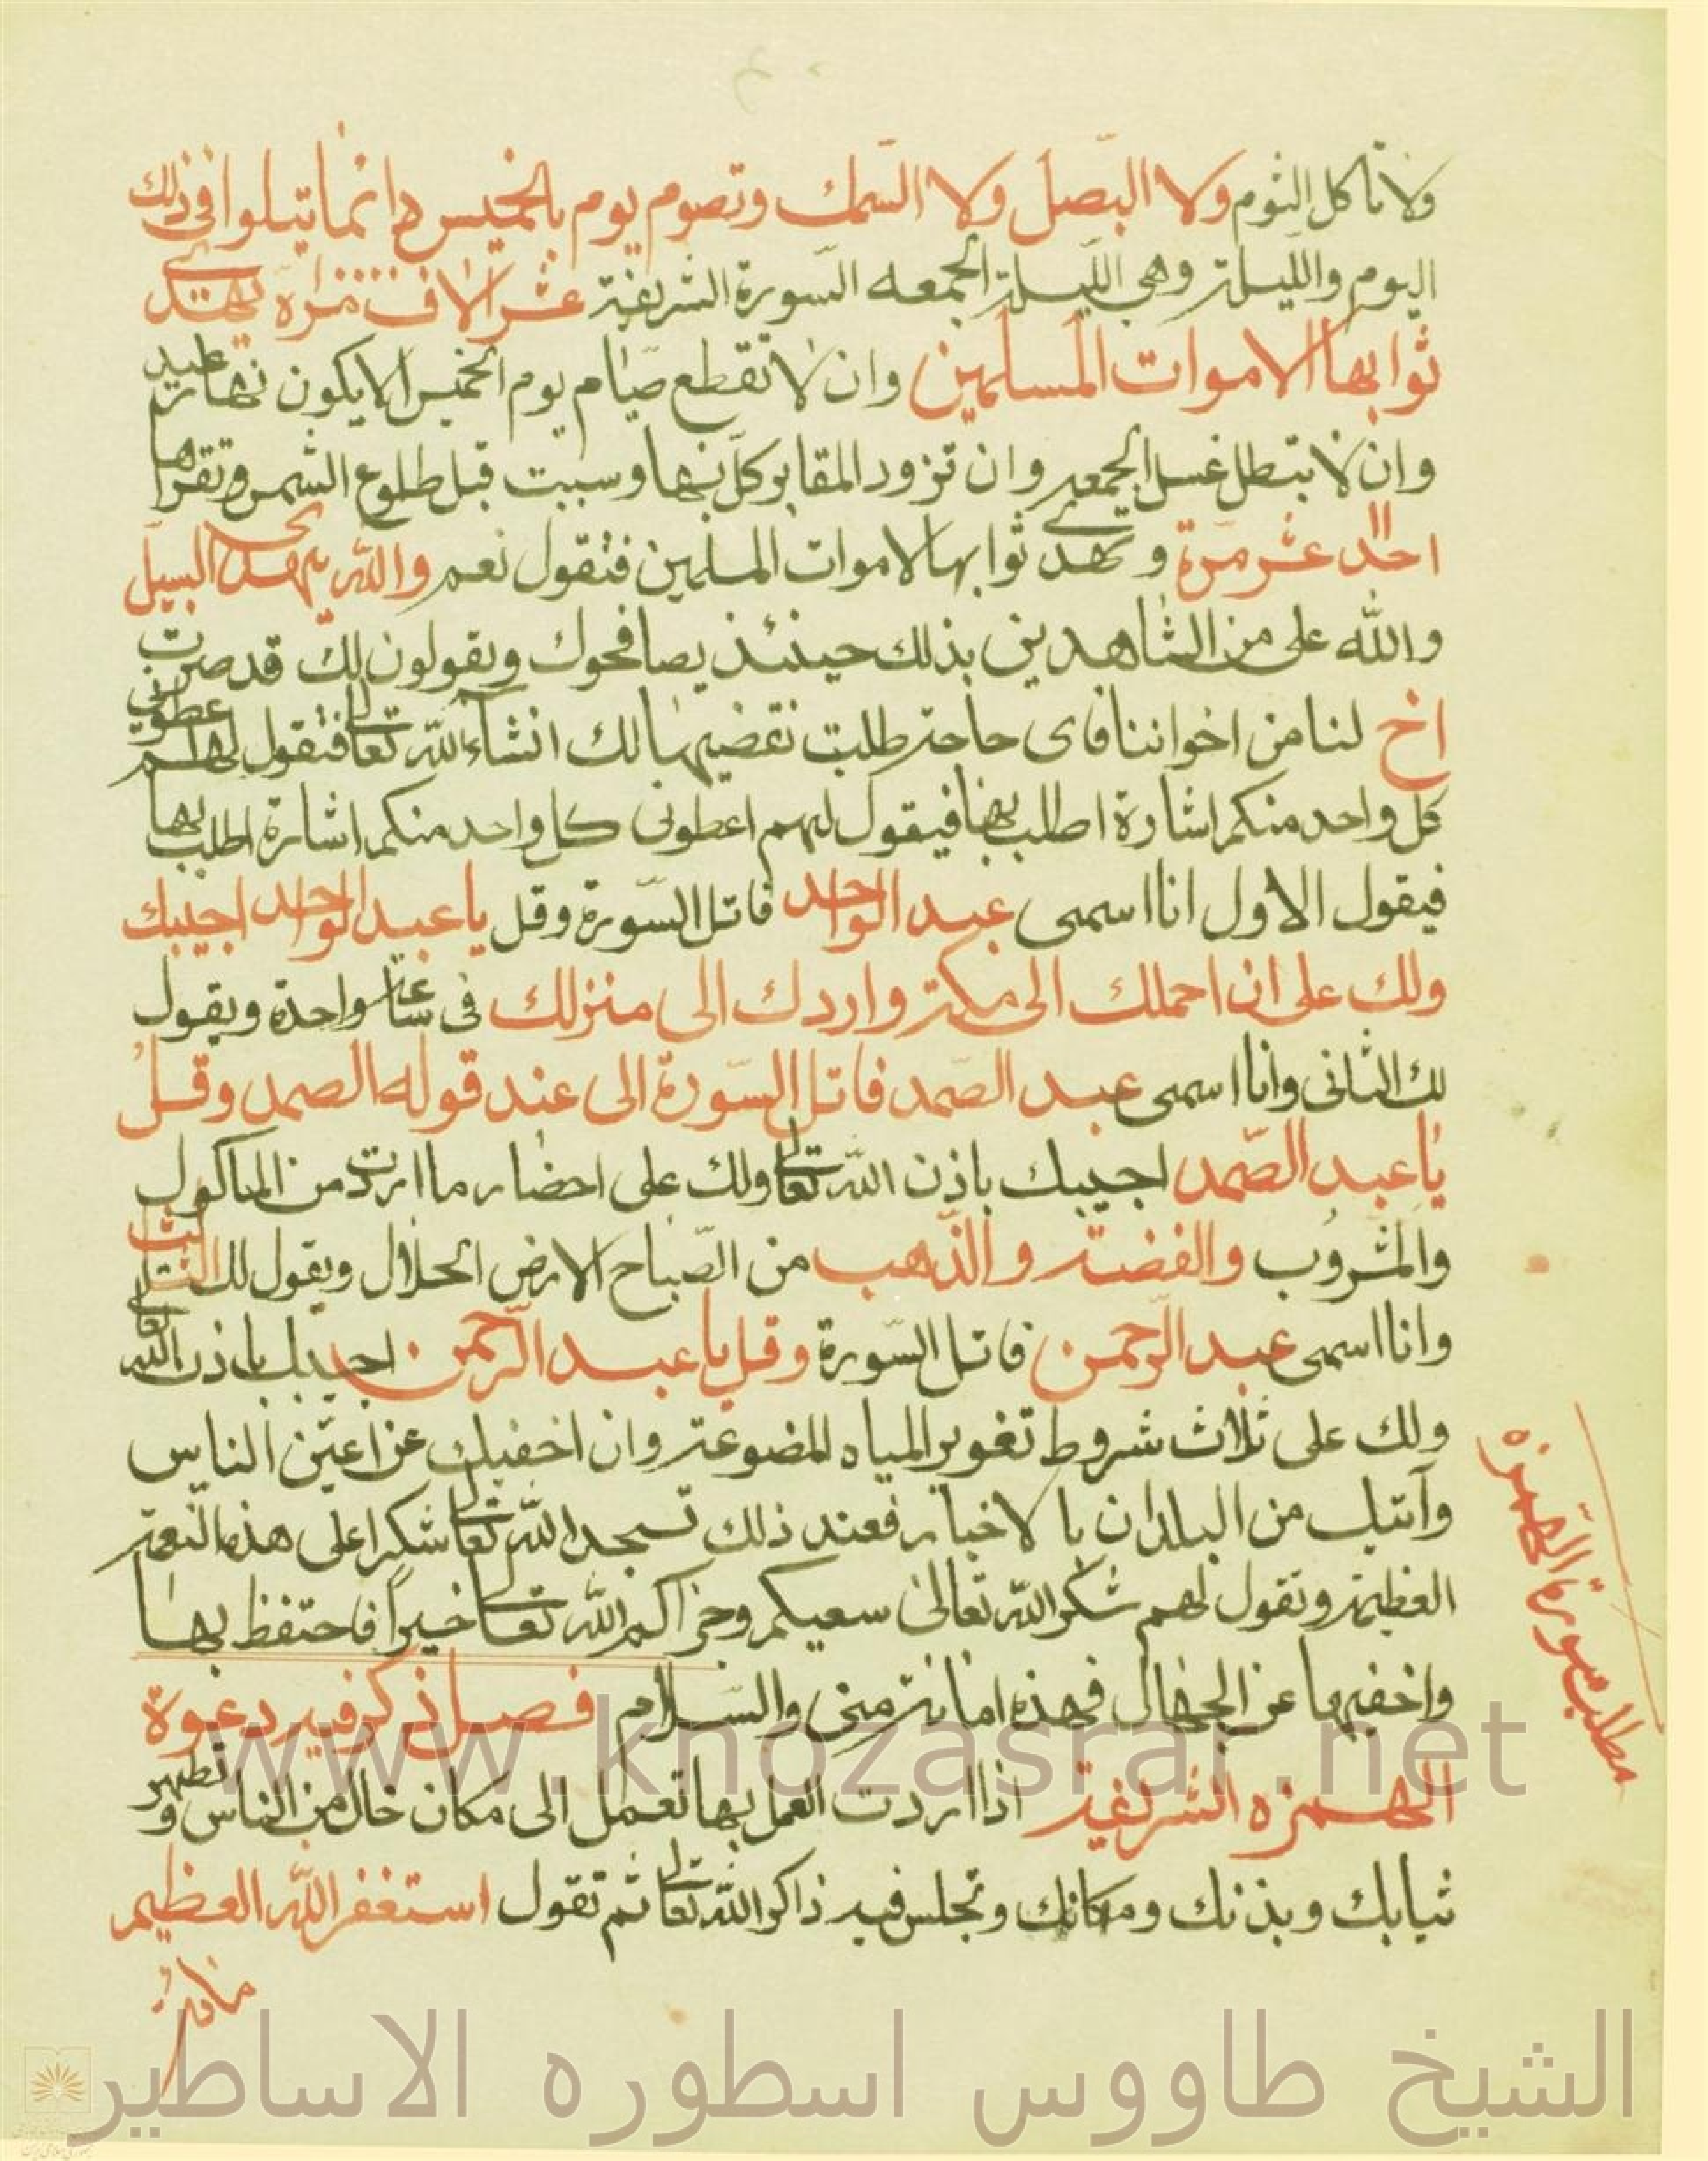 ولا تاكل الثوم ولا البصل ولا السمك وتصوم يوم بالخميس وانما يتلوا في ذلك
اليوم والليلة وهي الليلة الجمعه السورة الشريفة عشر الاف مرة تهدى
ثوابها الاموات المسلمين وان لا تقطع صيام يوم الخميس الا يكون نهار عيد
وان لا تبطل غسل الجمعه وان تزود المقابر كل نهار سبت قبل طلوع الشمس وتقراها
احد عشر مرة وتهدى ثوابها لاموات المسلمين فتقول نعم والله يهدى السبيل
والله على من الشاهدين بذلك حينئذ يصافحوك ويقولون لك قد صرت
اخ لنا من اخواننا فاى حاجة طلبت نقضيها لك انشاء الله تعالى فتقول لهم اعطونى
كل واحد منكم اشارة اطلب بها فيقول لهم اعطونى كل واحد منكم اشارة اطلب بها
فيقول الاول انا اسمى عبد الواحد فاتل السورة وقل يا عبد الواحد اجيبك
ولك على ان احملك الى مكة واردك الى منزلك فى ساعة واحدة ويقول
لك الثانى وانا اسمى عبد الصمد فاتل السورة الى عند قوله الصمد وقل
يا عبد الصمد اجيبك باذن الله تعالى ولك على احضار ما اردت من الماكول
والمشروب والفضة والذهب من الصباح الارض الحلال ويقول لك الثالث
وانا اسمى عبد الرحمن فاتل السورة وقل يا عبد الرحمن اجيبك باذن الله تعالى
ولك على ثلاث شروط تغوير المياه المضوعة وان اخفيك عن اعين الناس
وآتيك من البلدان بالاخبار فعند ذلك تسجد الله تعالى شكرا على هذه النعمة
العظيمة وتقول لهم شكر الله تعالى سعيكم وجزاكم الله تعالى خيرا فاحتفظ بها
واخفيها عن الجهال فهذه امانة منى والسلام فصل نذكر فيه دعوة
الهمزه الشريفة اذا اردت العمل بها تعمل الى مكان خال من الناس وتطهر
ثيابك وبدنك ومكانك وتجلس فيه ذاكر الله تعالى ثم تقول استغفر الله العظيم
مطلب سورة الهمزه
www.knozasrar.net
الشيخ طاووس اسطوره الاساطير